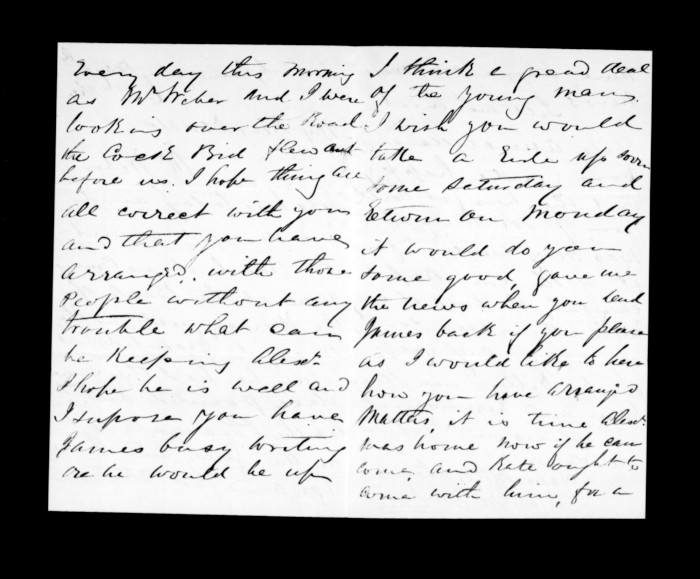 Every day this morning
as Mr Weber and I were
looking over the Road
the Cock Bird flew out
before us. I hope thing are
all correct with you
and that you have
arranged, with those
People without any
trouble what can
be Keeping Alexr.
I hope he is well and
I supose you have
James busy writing
or he would be up
I think a great deal
of the young man.
I wish you would
take a Ride up soon
some Saturday and
return on Monday
it would do you
some good, gave me
the news when you send
James back if you please
as I would like to hear
how you have arranged
Matters, it is time Alexr.
was home now if he can
come, and Kate ought to
come with him, for a